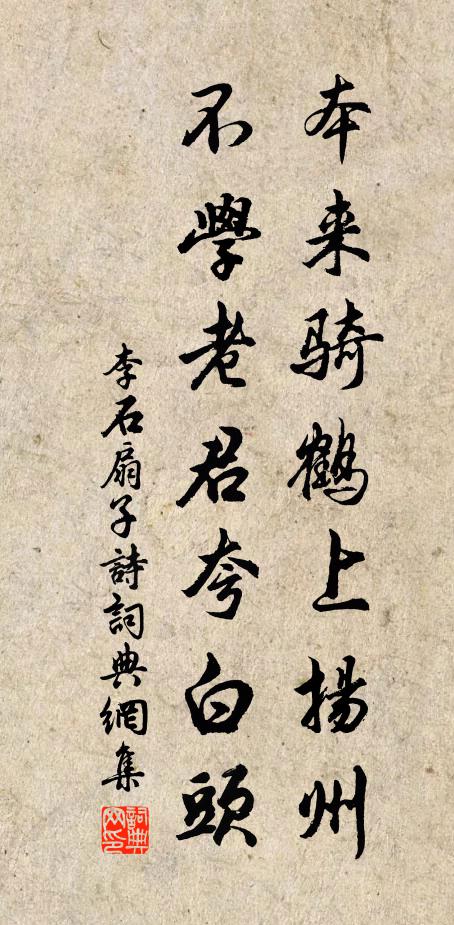 本来骑鹤上揚州
不學老君夸白頭
李石扇子詩詞典網集
詞典網印